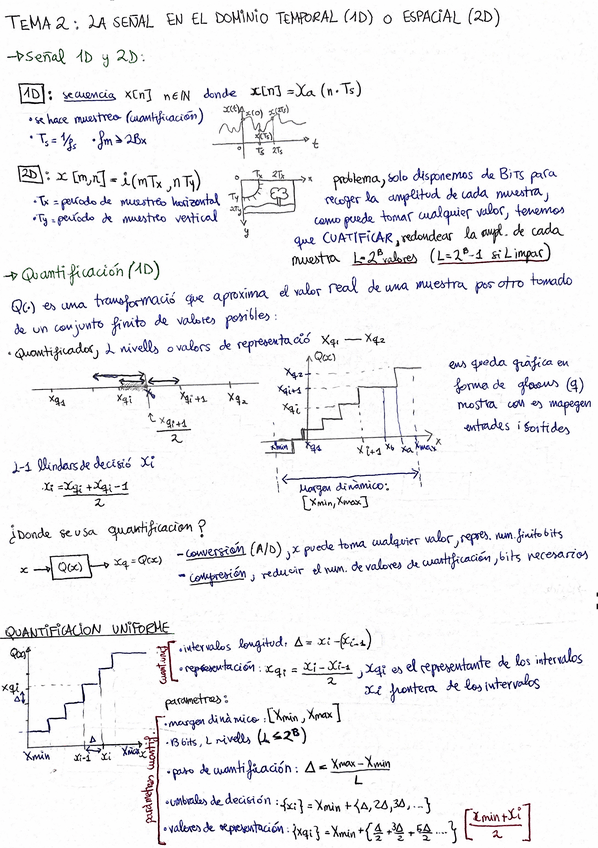 TEMA 2: LA SEÑAL EN EL DOMINIO TEMPORAL (1D) O ESPACIAL (2D)
→Señal 1D y 2D:
1D : secuencia x[n] n∈IN donde x[n] = Xa (n·Ts)
• se hace muestreo (cuantificación)
• Ts = 1/fs • fm ≥ 2Bx
x(t) x(0) x(Ts) x(2Ts)
Ts 2Ts t
2D : x [m,n] = i (mTx , nTy)
• Tx = período de muestreo horizontal
• Ty = período de muestreo vertical
0 Tx 2Tx x
Ty
2Ty
y
problema, solo disponemos de BiTs para
recoger la amplitud de cada muestra,
como puede tomar cualquier valor, tenemos
que CUATIFICAR, redondear la ampl. de cada
muestra L=2^B valores (L=2^B-1 si L impar)
→ Quantificación (1D)
Q(·) es una transformació que aproxima el valor real de una muestra por otro tomado
de un conjunto finito de valores posibles:
• Quantificador, L nivells o valors de representació Xq1 — Xq2
xq1 xqi xqi+1 xq2
xqi+1
2
Q(x)
Xq2
Xqi+1
Xqi
xmin xq1 xi+1 xb xa xmax x
Margen dinámico:
[xmin, xmax]
ens queda gràfica en
forma de
mostra com es mapegen
entrades i sortides
L-1 llindars de decisió xi
xi = xqi + xqi-1
2
¿Donde se usa quantificacion?
x → Q(x) → xq = Q(x)
- conversión (A/D), x puede toma cualquier valor, repres. num. finito bits
- compresión, reducir el num. de valores de cuantificación, bits necesarios
QUANTIFICACION UNIFORME
Q(x)
xqi
Δ
Xmin xi-1 xi Xmax x
Δ
• intervalos longitud: Δ = xi-(xi-1)
• representación: xqi = xi - xi-1 / 2 , xqi es el representante de los intervalos
xi frontera de los intervalos
parametres:
parámetros cuantif.
• margen dinàmico: [Xmin, Xmax]
• B bits, L nivells (L ≤ 2^B)
• paso de cuantificación: Δ = Xmax - Xmin / L
• umbrales de decisión: {xi} = Xmin + {Δ, 2Δ, 3Δ, ...}
• valores de representación: {xqi} = Xmin + {Δ/2 + 3Δ/2 + 5Δ/2 ....} [xmin + xi / 2]